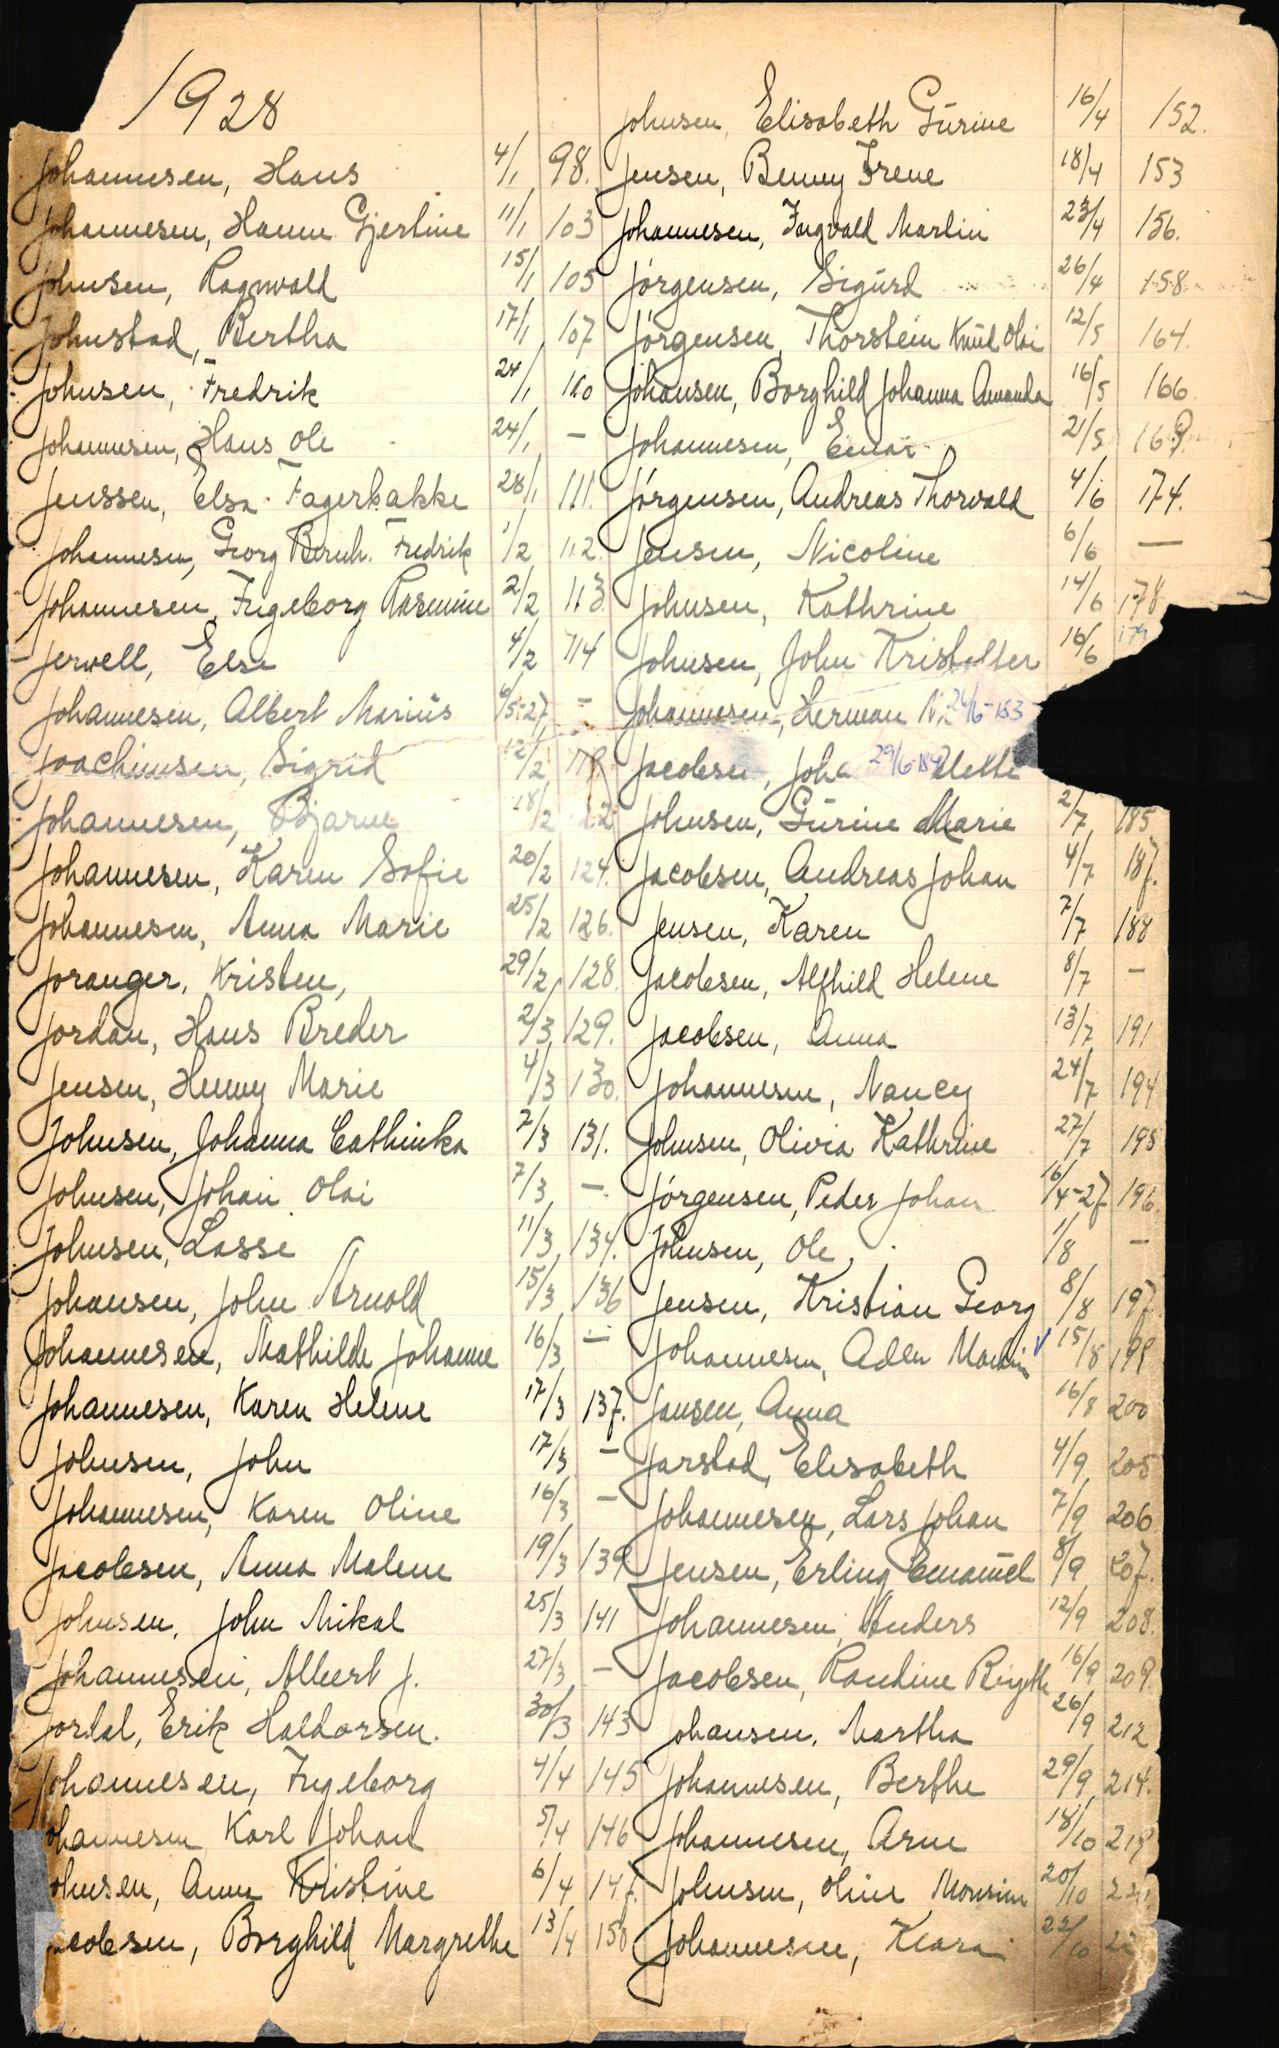 1928
Johannesen, Hans 4/1 98.
Johannesen, Hanne Gjertine 11/1 103
Johnsen, Ragnvald 15/1 105
Johnstad, Bertha 17/1 107
Johnsen, Fredrik 24/1 110
Johannesen, Hans Ole 24/1 —
Jenssen, Elsa Fagerbakke 28/1 111.
Johannesen, Georg Bernh. Fredrik 1/2 112.
Johannesen, Ingeborg Rasmine 2/2 113.
Jervell, Else 4/2 114
Johannesen, Albert Marius 6/5-27 -
Joachimsen, Sigrid 12/2
Johannesen, Bjarne 18/2
Johannesen, Karen Sofie 20/2 124.
Johannesen, Anna Marie 25/2 126.
Joranger, Kristen, 29/2 128.
Jordan, Hans Breder 2/3 129.
Jensen, Henny Marie 4/3 130.
Johnsen, Johanna Cathinka 7/3 131.
Johnsen, Johan Olai 7/3 —
Johnsen, Lasse 11/3 134.
Johansen, John Arnold 15/3 136
Johannesen, Mathilde Johanne 16/3 —
Johannesen, Karen Helene 17/3 137.
Johnsen, John 17/3 —
Johannesen, Karen Oline 16/3 —
Jacobsen, Anna Malene 19/3 139
Johnsen, John Mikal 25/3 141
Johannesen, Albert J. 27/3 —
Jordal, Erik Haldorsen. 30/3 143
Johannesen, Ingeborg 4/4 145
ohannesen Karl Johan 5/4 146
ohnsen, Anna Kristine 6/4 147.
cobsen, Borghild Margrethe 13/4 150
Johnsen, Elisabeth Gurine 16/4 152.
Jensen, Benny Irene 18/4 153
Johannesen, Ingvald Martin 23/4 156.
Jørgensen, Sigurd 26/4 158.
Jørgensen, Thorstein Knud Olai 12/5 164.
Johansen, Borghild Johanna Amanda 16/5 166.
Johannesen, Einar 21/5 169.
Jørgensen, Andreas Thorvald 4/6 174.
Jensen, Nicoline 6/6 —
Johnsen, Kathrine 14/6 178
Johnsen, John Kristoffer 16/6 179
Johannesen, Herman N. 26/6-183
Jacobsen, Joha 29/6-184 Mette
Johnsen, Gurine Marie 2/7 185
Jacobsen, Andreas Johan 4/7 187.
Jensen, Karen 7/7 188
Jacobsen, Alfhild Helene 8/7 —
Jacobsen, Anna 13/7 191
Johannesen, Nancy 24/7 194
Johnsen, Olivia Kathrine 27/7 195
Jørgensen, Peder Johan 16/4-27 196.
Johnsen, Ole 1/8 —
Jensen, Kristian Georg 8/8 197.
Johannesen, Aden Martin 15/8 199
Jansen, Anna 16/8 200
Jarstad, Elisabeth 4/9 205
Johannesen, Lars Johan 7/9 206
Jensen, Erling Emanuel 8/9 207.
Johannesen, Anders 12/9 208.
Jacobsen, Randine Birgitte 16/9 209.
Johansen, Martha 26/9 212
Johannesen, Berthe 29/9 214.
Johannesen, Arne 18/10 219
Johnsen, Oline Monsine 20/10
Johannesen, Klara 22/10